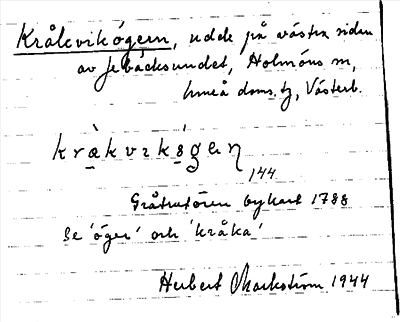 Kråkvikögern, udde på västra sidan
av Jebäcksundet, Holmöns sn,
Umeå doms. tg, Västerb.
kràkvɩkṣgɐrŋ
144
bykart 1788
Se 'öger' och 'kråka'
Herbert Markström 1944